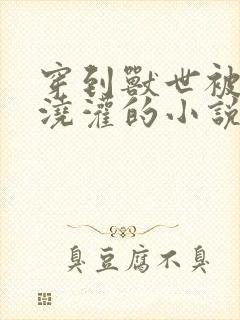 穿到獸世被
澆灌的小說
臭豆腐不臭